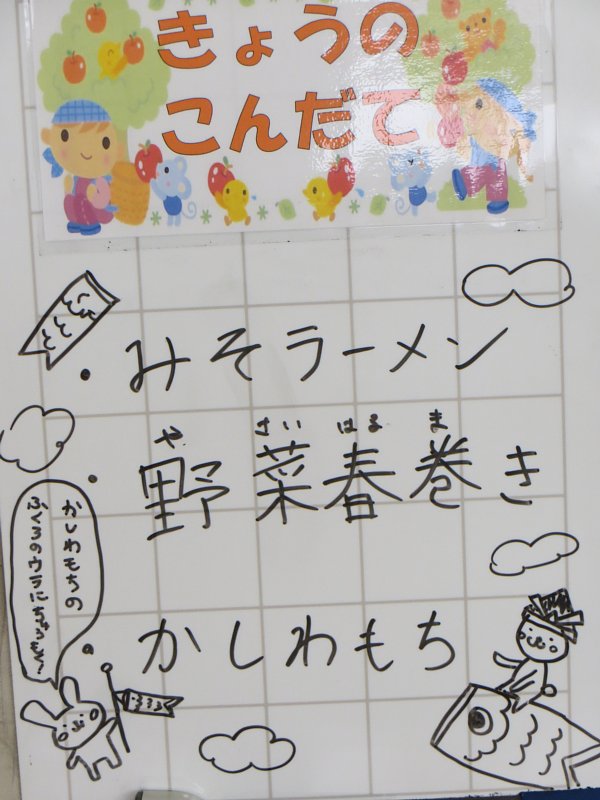 きょうの
こんだて
・みそラーメン
やさいはるま
・野菜春巻き
・かしわもち
かしわもちの
ふくろのウラにちゅうもく〜